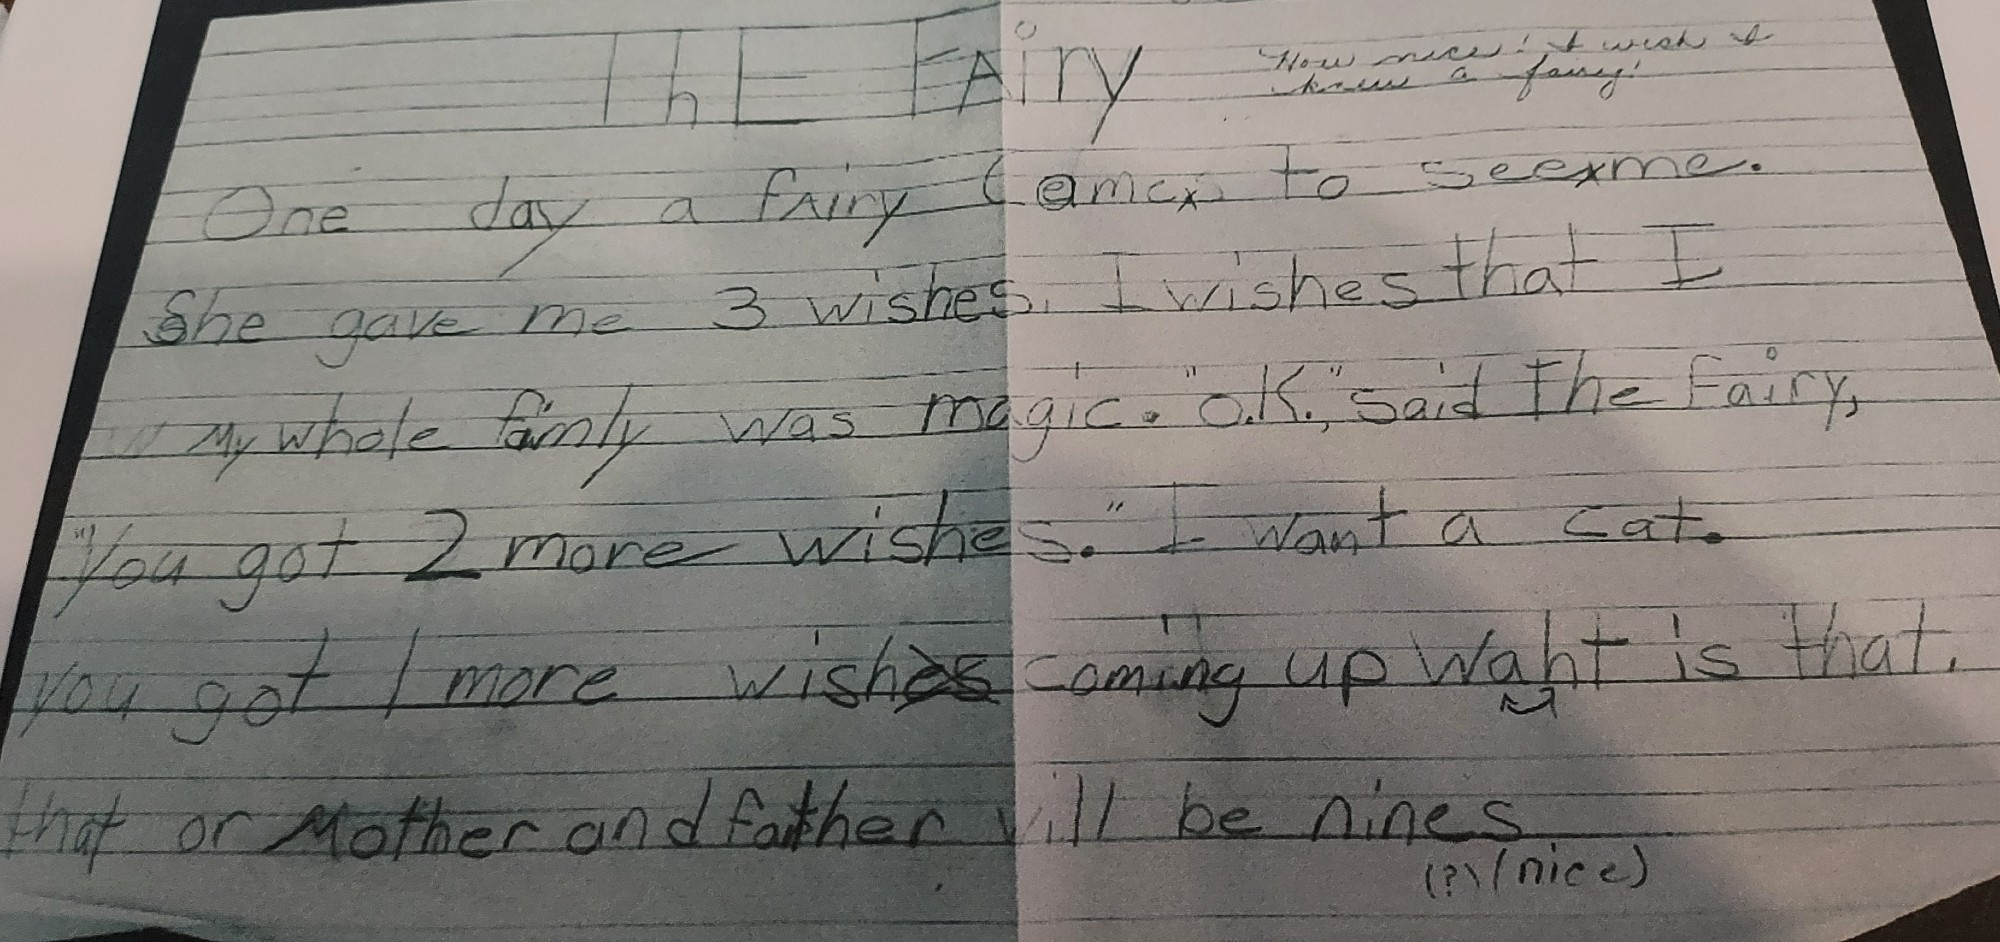 ThE FAiry
"How nice! I wish I
knew a fairy!
One day a fairy came to see me.
She gave me 3 wishes. I wishes that I
My whole fāmly was magic. "O.K.," said The Fairy,
"You got 2 more wishes." I want a cat.
you got 1 more wish coming up Waht is that.
that or Mother and father will be nines
(?) (nice)